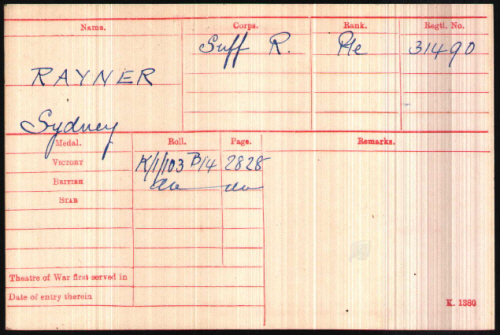 Name. Corps. Rank. Regtl. No.
RAYNER Suff R. Pte 31490
Sydney
Medal. Roll. Page. Remarks.
VICTORY K/1/103 B/4 2828
BRITISH do do
STAR
Theatre of War first served in
Date of entry therein
K. 1380